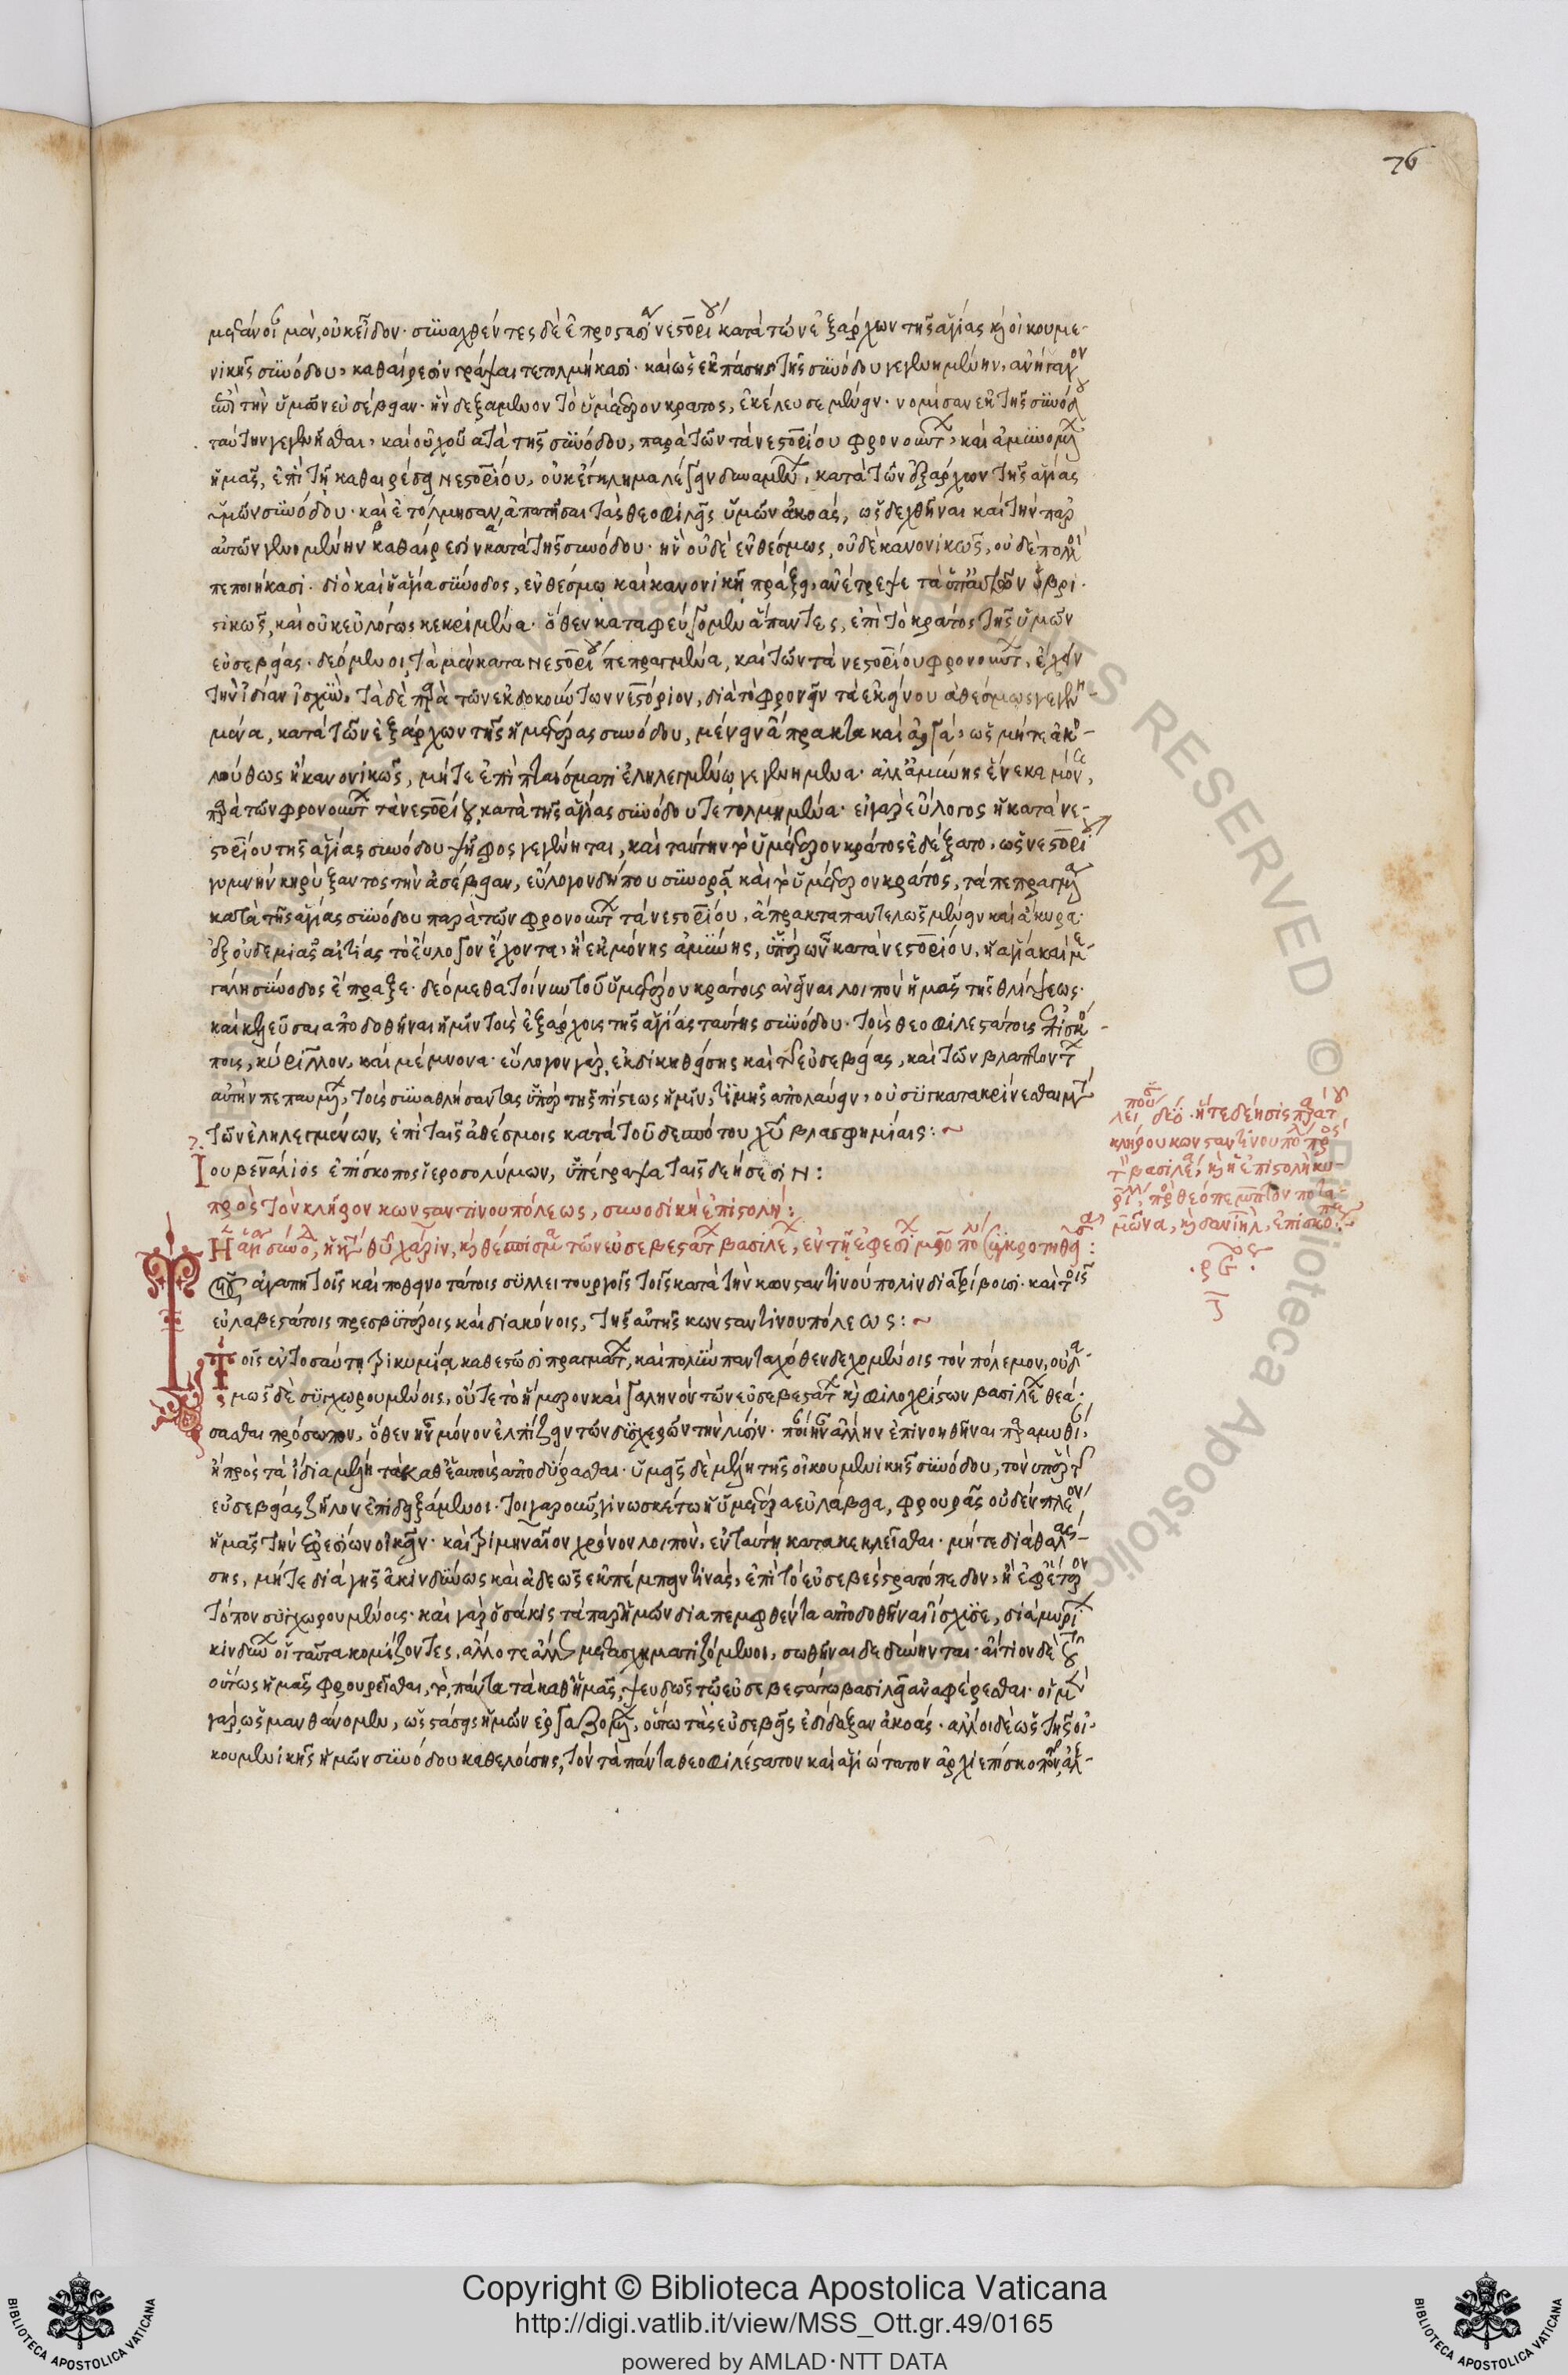 76
μετάνοιαν μὲν, οὐκ εἶδον· συναχθέντες δὲ ἐπροστασίαν νεστορίου κατὰ τῶν ἐξάρχων τῆς ἁγίας καὶ οἰκουμε-
νικῆς συνόδου, καθαίρεσιν γράψαι τετολμήκασι· καὶ ὡς ἐκ πάσης τῆς συνόδου γεγενημένην, ἀνήγαγον
ἐπὶ τὴν ὑμῶν εὐσέβειαν· ἣν δεξάμενον τὸ ὑμέτερον κράτος, ἐκέλευσε μένειν· νομίσαν ἐκ τῆς συνόδου
ταύτην γεγενῆσθαι, καὶ οὐχ οὕτω κατὰ τῆς συνόδου, παρὰ τῶν τὰ νεστορίου φρονούντων, καὶ ἀμυνομένων
ἡμᾶς, ἐπὶ τῇ καθαιρέσει νεστορίου, οὐκ ἔγκλημα λέγειν δυναμένων, κατὰ τῶν ἐξάρχων τῆς ἁγίας
ἡμῶν συνόδου· καὶ ἐτόλμησαν, ἀπατῆσαι τὰς θεοφιλεῖς ὑμῶν ἀκοὰς, ὡς δεχθῆναι καὶ τὴν παρ
αὐτῶν γενομένην καθαίρεσιν κατὰ τῆς συνόδου· ἣν οὐδὲ ἐνθέσμως, οὐδὲ κανονικῶς, οὐδὲ πολλοὶ
πεποιήκασι· διὸ καὶ ἡ ἁγία σύνοδος, ἐνθέσμῳ καὶ κανονικῇ πράξει, ἀνέτρεψε τὰ ὑπ αὐτῶν ὑβρι-
στικῶς, καὶ οὐκ εὐλόγως κεκριμένα· ὅθεν καταφεύγομεν ἅπαντες, ἐπὶ τὸ κράτος τῆς ὑμῶν
εὐσεβείας· δεόμενοι, τὰ μὲν κατα νεστορίου πεπραγμένα, καὶ τῶν τὰ νεστορίου φρονούντων, ἔχειν
τὴν ἰδίαν ἰσχὺν, τὰ δὲ παρὰ τῶν ἐκδικούντων νεστόριον, διὰ τὸ φρονεῖν τὰ ἐκείνου ἀθέσμως γεγενη-
μένα, κατὰ τῶν ἐξάρχων τῆς ἡμετέρας συνόδου, μένειν ἄπρακτα καὶ ἀργὰ, ὡς μήτε ἀκο-
λούθως ἢ κανονικῶς, μήτε ἐπὶ πταίσματι ἐληλεγμένῳ γεγενημένα· ἀλλ ἀμύνης ἕνεκα μόνης,
παρὰ τῶν φρονούντων τὰ νεστορίου, κατὰ τῆς ἁγίας συνόδου τετολμημένα· εἰ γὰρ εὔλογος ἡ κατὰ νε-
στορίου τῆς ἁγίας συνόδου ψῆφος γεγένηται, καὶ ταύτην τὸ ὑμέτερον κράτος ἐδέξατο, ὡς νεστορίου
γυμνὴν κηρύξαντος τὴν ἀσέβειαν, εὔλογον δήπου συνορᾶν καὶ τὸ ὑμέτερον κράτος, τὰ πεπραγμένα
κατὰ τῆς ἁγίας συνόδου παρὰ τῶν φρονούντων τὰ νεστορίου, ἄπρακτα παντελῶς μένειν καὶ ἄκυρα·
ἐξ οὐδεμιᾶς αἰτίας τὸ εὔλογον ἔχοντα, ἢ ἐκ μόνης ἀμύνης, ὑπὲρ ὧν κατὰ νεστορίου, ἡ ἁγία καὶ με-
γάλη σύνοδος ἔπραξε· δεόμεθα τοίνυν τοῦ ὑμετέρου κράτους ἀνεῖναι λοιπὸν ἡμᾶς τῆς θλίψεως·
καὶ κελεῦσαι ἀποδοθῆναι ἡμῖν τοὺς ἐξάρχους τῆς ἁγίας ταύτης συνόδου· τοὺς θεοφιλεστάτους ἐπισκό-
πους, κύριλλον, καὶ μέμνονα· εὔλογον γὰρ, ἐκδικηθείσης καὶ τῆς εὐσεβείας, καὶ τῶν βλαπτόντων
αὐτὴν πεπαυμένων, τοὺς συναθλήσαντας ὑπὲρ τῆς πίστεως ἡμῖν, τιμῆς ἀπολαύειν, οὐ συγκατακρίνεσθαι μετὰ
τῶν ἐληλεγμένων, ἐπὶ ταῖς ἀθέσμοις κατὰ τοῦ δεσπότου χῦ βλασφημίαις: ~
Ιουβενάλιος ἐπίσκοπος ἱεροσολύμων, ὑπέγραψα ταῖς δεήσεσιν:
πρὸς τὸν κλῆρον κωνσταντινουπόλεως, συνοδικὴ ἐπιστολή:
Ἡ ἁγία σύνοδος, ἡ κατὰ θῦ χάριν, καὶ θέσπισμα τῶν εὐσεβεστάτων βασιλέων, ἐν τῇ ἐφεσίων μητροπόλει συγκροτηθεῖσα:
τοῖς ἀγαπητοῖς καὶ ποθεινοτάτοις συλλειτουργοῖς τοῖς κατὰ τὴν κωνσταντινούπολιν διατρίβουσι· καὶ τοῖς
εὐλαβεστάτοις πρεσβυτέροις καὶ διακόνοις, τῆς αὐτῆς κωνσταντινουπόλεως: ~
Τοῖς ἐν τοσαύτῃ τρικυμίᾳ καθεστῶσι πραγμάτων, καὶ πολὺν πανταχόθεν δεχομένοις τὸν πόλεμον, οὐδα-
μῶς δὲ συγχωρουμένοις, οὔτε τὸ ἥμερον καὶ γαληνὸν τῶν εὐσεβεστάτων καὶ φιλοχρίστων βασιλέων θεά-
σασθαι πρόσωπον, ὅθεν ἦν μόνον ἐλπίζειν τῶν δυσχερῶν τὴν λύσιν· ποίην ἄλλην ἐπινοηθῆναι παραμυθίαν,
ἢ πρὸς τὰ ἴδια μέλη τὰ καθ ἑαυτοὺς ἀποδύρασθαι· ὑμεῖς δὲ μέλη τῆς οἰκουμενικῆς συνόδου, τὸν ὑπὲρ τῆς
εὐσεβείας ζῆλον ἐπιδειξάμενοι· τοιγαροῦν, γινωσκέτω ἡ ὑμετέρα εὐλάβεια, φρουρᾶς οὐδὲν πλέον
ἡμᾶς τὴν ἐφεσίων οἰκεῖν· καὶ τριμηναῖον χρόνον λοιπὸν, ἐν ταύτῃ κατακεκλεῖσθαι· μήτε διὰ θαλάς-
σης, μήτε διὰ γῆς ἀκινδύνως καὶ ἀδεῶς ἐκπέμπειν τινὰς, ἐπὶ τὸ εὐσεβὲς στρατόπεδον, ἢ ἐφ ἕτερον
τόπον συγχωρουμένους· καὶ γὰρ ὁσάκις τὰ παρ ἡμῶν διαπεμφθέντα ἀποδοθῆναι ἴσχυσε, διὰ μυρίων
κινδύνων οἱ ταῦτα κομίζοντες, ἄλλοτε ἄλλως μετασχηματιζόμενοι, σωθῆναι δεδύνηνται· αἴτιον δὲ τοῦ
οὕτως ἡμᾶς φρουρεῖσθαι, τὸ, πάντα τὰ καθ ἡμᾶς, ψευδῶς τῷ εὐσεβεστάτῳ βασιλεῖ ἀναφέρεσθαι· οἱ μὲν
γὰρ, ὡς μανθάνομεν, ὡς στάσεις ἡμῶν ἐργαζομένων, οὕτω τὰς εὐσεβεῖς ἐδίδαξαν ἀκοάς· ἄλλοι δὲ ὡς τῆς οἰ-
κουμενικῆς ἡμῶν συνόδου καθελούσης, τὸν τὰ πάντα θεοφιλέστατον καὶ ἁγιώτατον ἀρχιεπίσκοπον ἀλε-
κλήρου κωνσταντινουπόλεως πρὸς
βασιλέα, καὶ ἡ ἐπιστολὴ κυ-
Copyright © Biblioteca Apostolica Vaticana
http://digi.vatlib.it/view/MSS_Ott.gr.49/0165
powered by AMLAD·NTT DATA
BIBLIOTECA APOSTOLICA VATICANA
BIBLIOTECA APOSTOLICA VATICANA